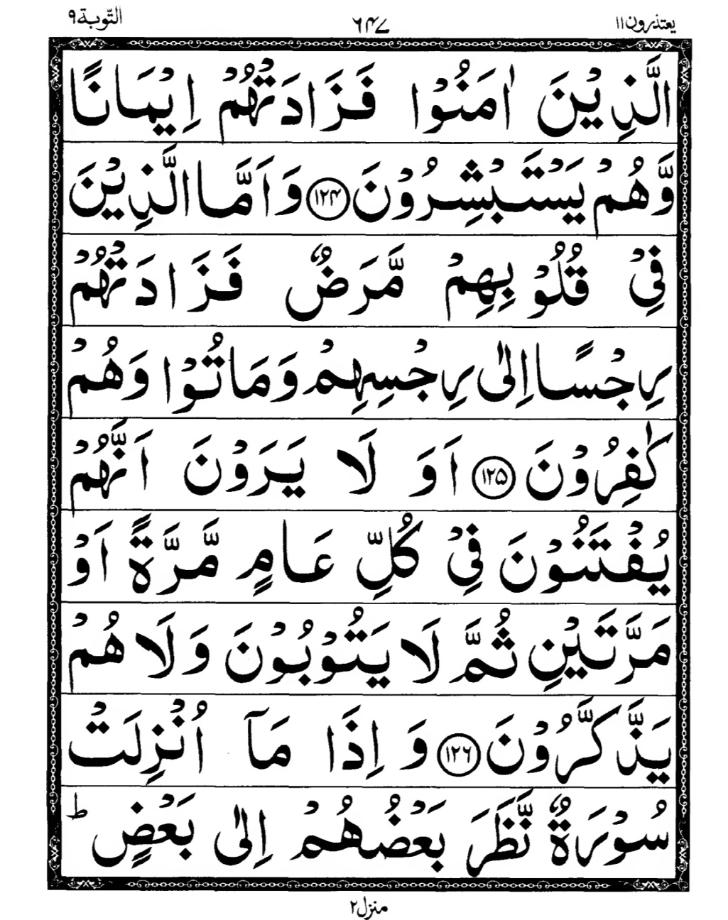 یعتذرون۱۱ ۶۴۷ التوبة۹
الَّذِیْنَ اٰمَنُوْا فَزَادَتْهُمْ اِیْمَانًا
وَّهُمْ یَسْتَبْشِرُوْنَ ۝۱۲۴ وَاَمَّا الَّذِیْنَ
فِیْ قُلُوْبِهِمْ مَّرَضٌ فَزَادَتْهُمْ
رِجْسًا اِلٰی رِجْسِهِمْ وَمَاتُوْا وَهُمْ
كٰفِرُوْنَ ۝۱۲۵ اَوَ لَا یَرَوْنَ اَنَّهُمْ
یُفْتَنُوْنَ فِیْ كُلِّ عَامٍ مَّرَّةً اَوْ
مَرَّتَیْنِ ثُمَّ لَا یَتُوْبُوْنَ وَلَا هُمْ
یَذَّكَّرُوْنَ ۝۱۲۶ وَ اِذَا مَاۤ اُنْزِلَتْ
سُوْرَةٌ نَّظَرَ بَعْضُهُمْ اِلٰی بَعْضٍ ؕ
منزل۲